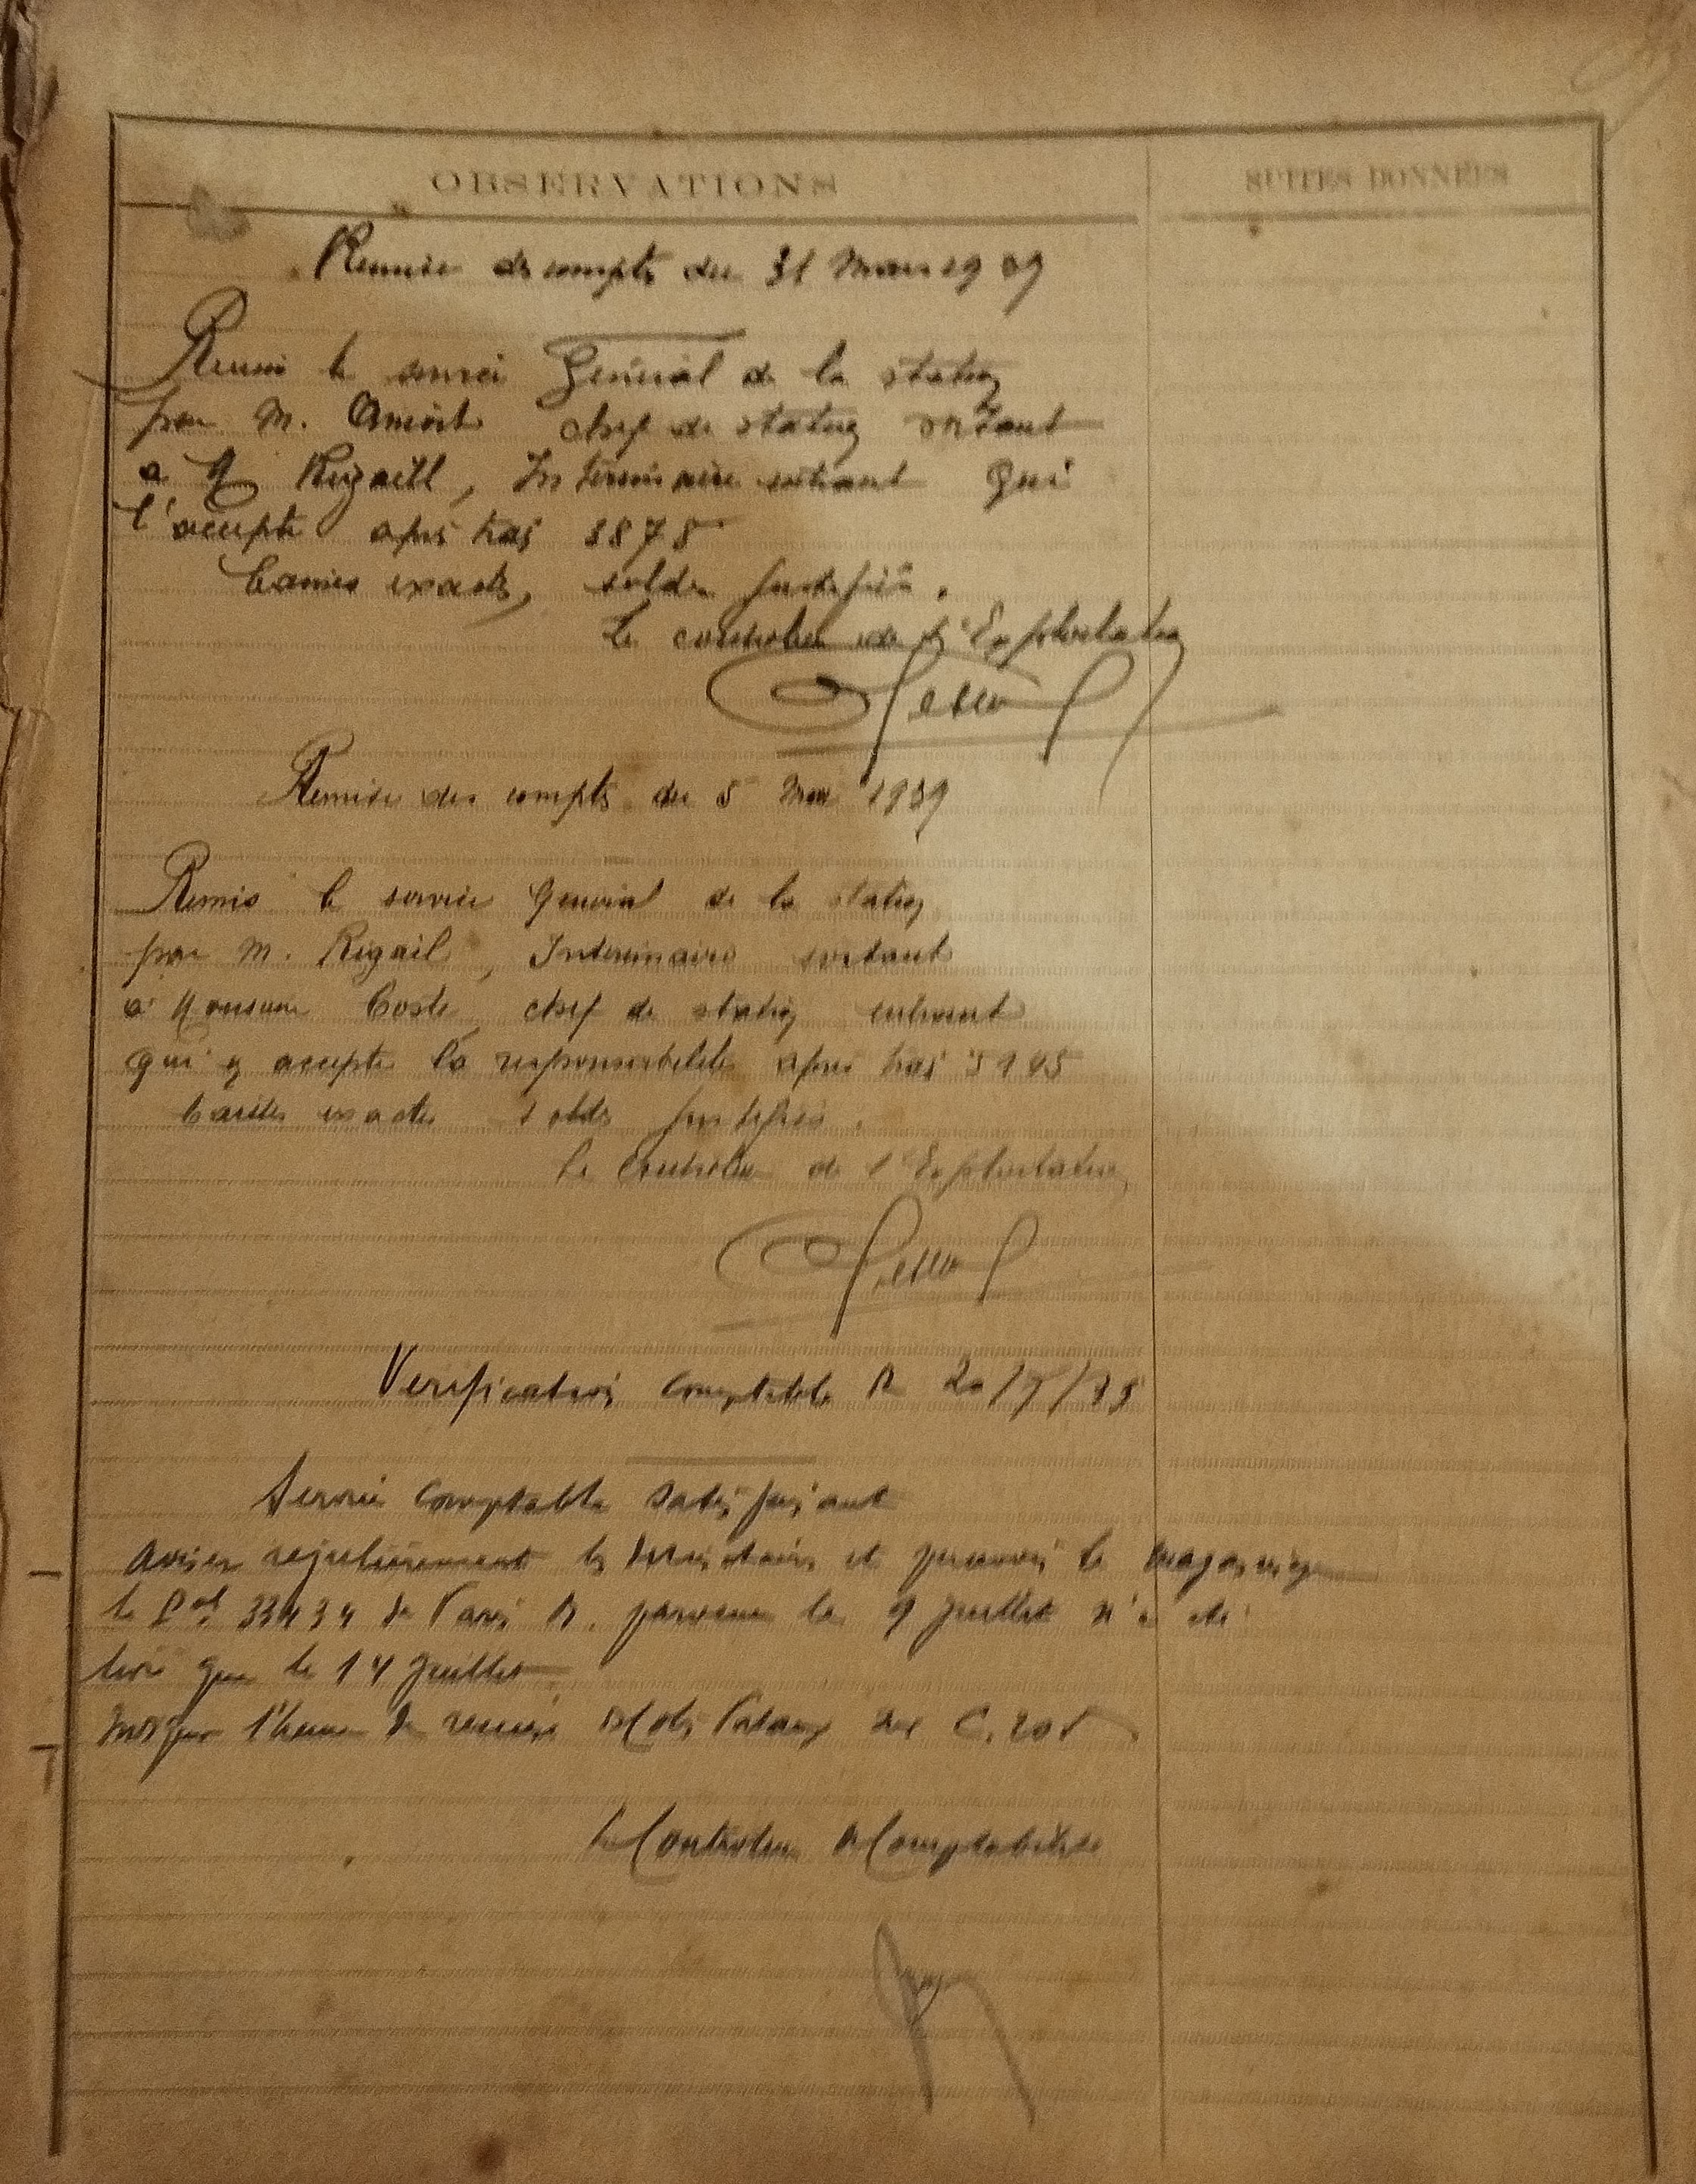 OBSERVATIONS
SUITES DONNÉES
Remise de compte du 31 Mars 19 39
Remis le service Général de la station
par M. chef de station sortant
a M Rigaill, Interimaire entrant qui
l'accepte apres 3878
Caisse exacte, solde justifié.
Le controleur de l'Exploitation
Remise des comptes du 5 Mai 1939
Remis le service General de la station
par M. Rigail, Interimaire sortant
à Monsieur Coste, chef de station entrant
qui y accepte la responsabilité apres 5195
Caisse exacte solde justifié.
Le Controleur de l'Exploitation
Verification Comptable 20/7/39
Service Comptable satisfaisant
Aviser regulierement les et le magasinage
le 33434 de Paris le 9 juillet n'a été
livré que le 14 juillet
l'heure de C. 205
Le Controleur Comptabilité